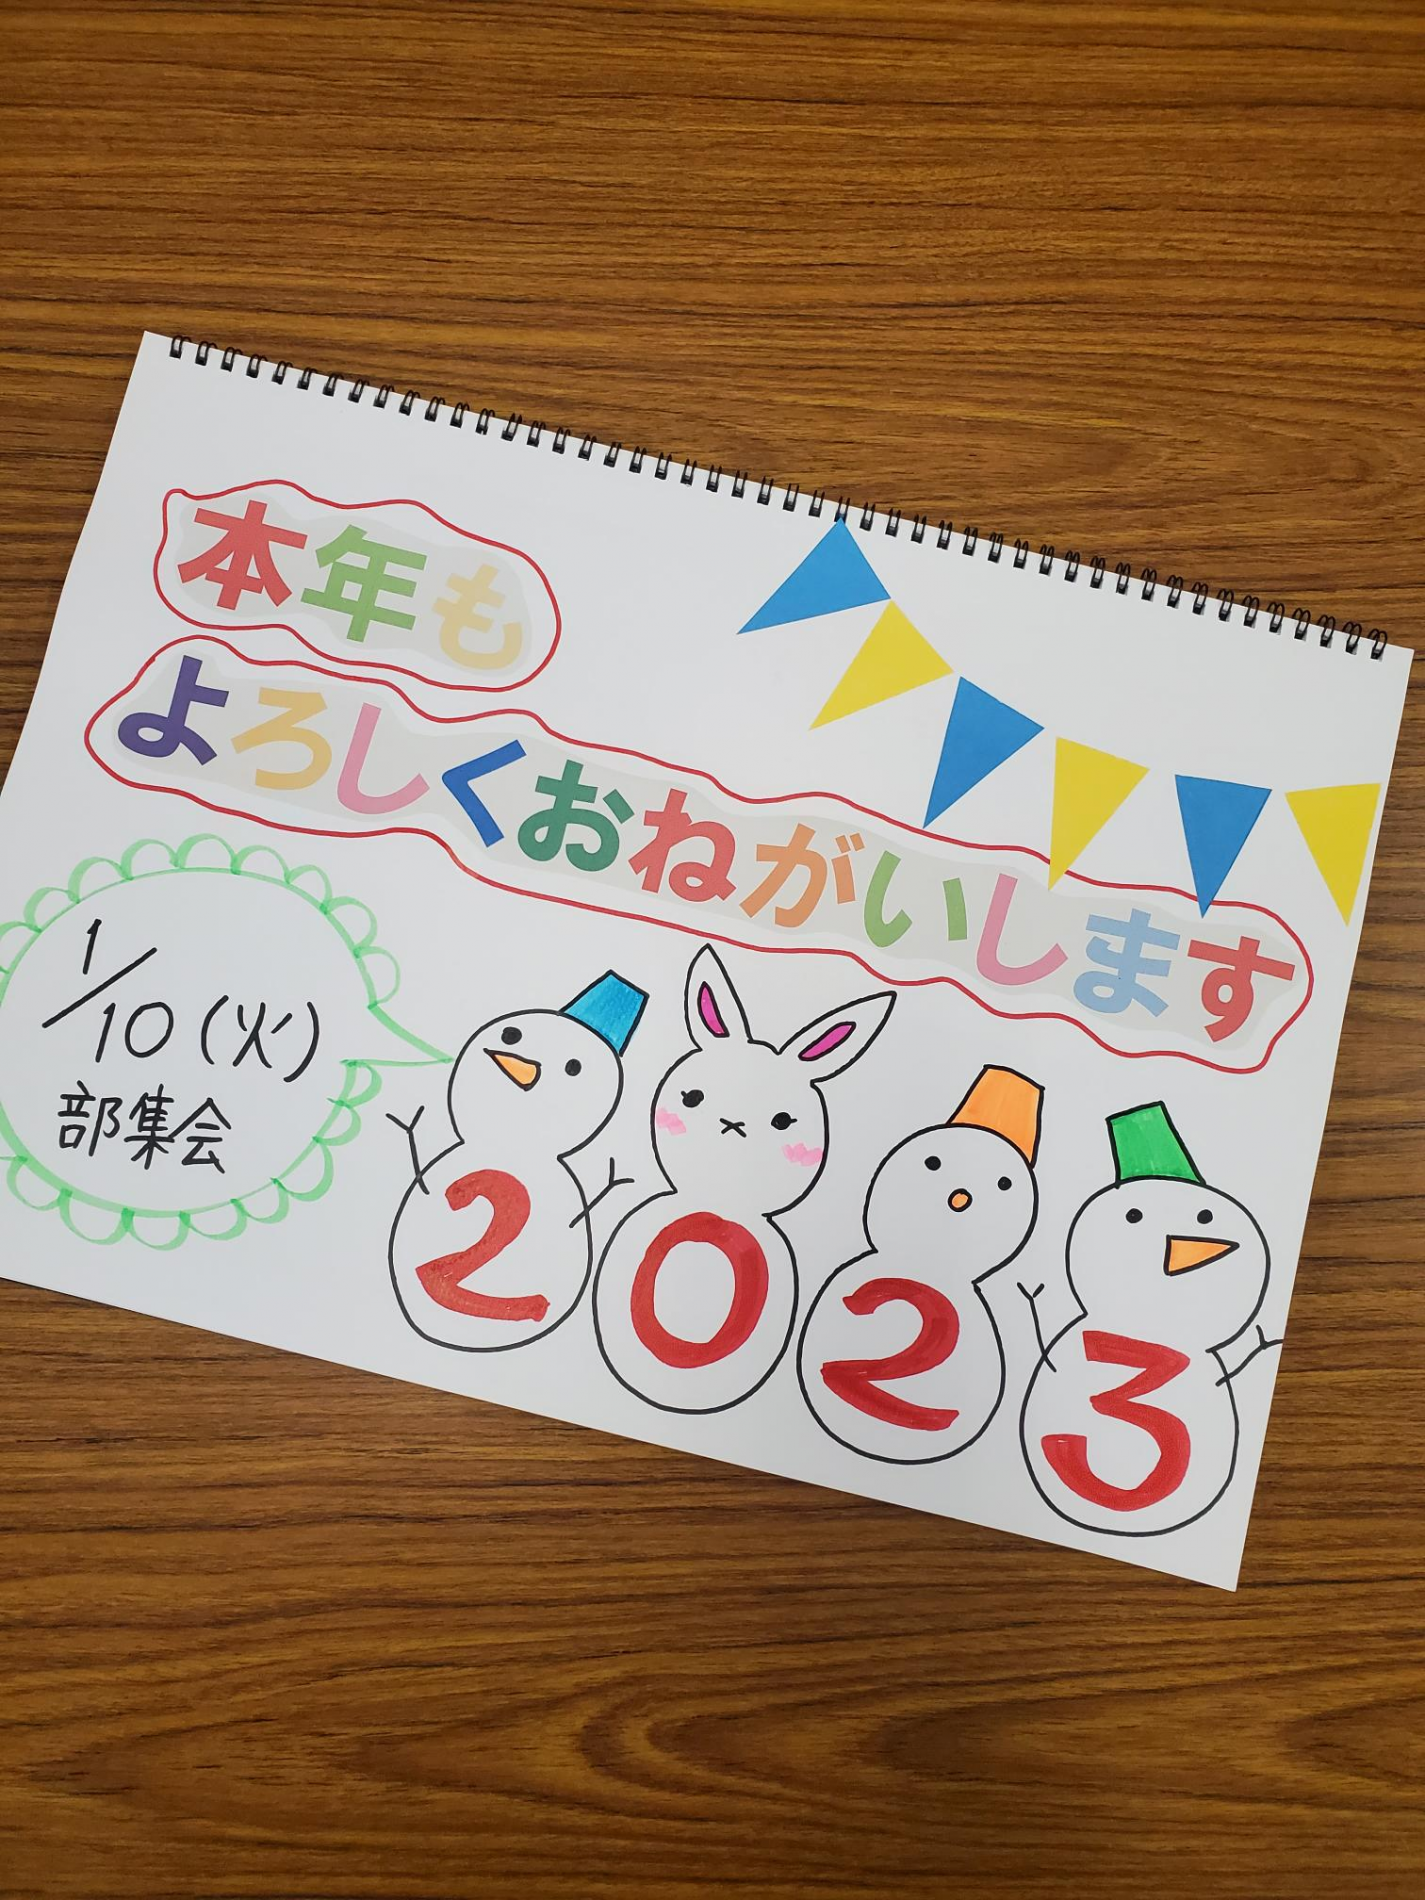 本年も
よろしくおねがいします
1/10(火)
部集会
2023